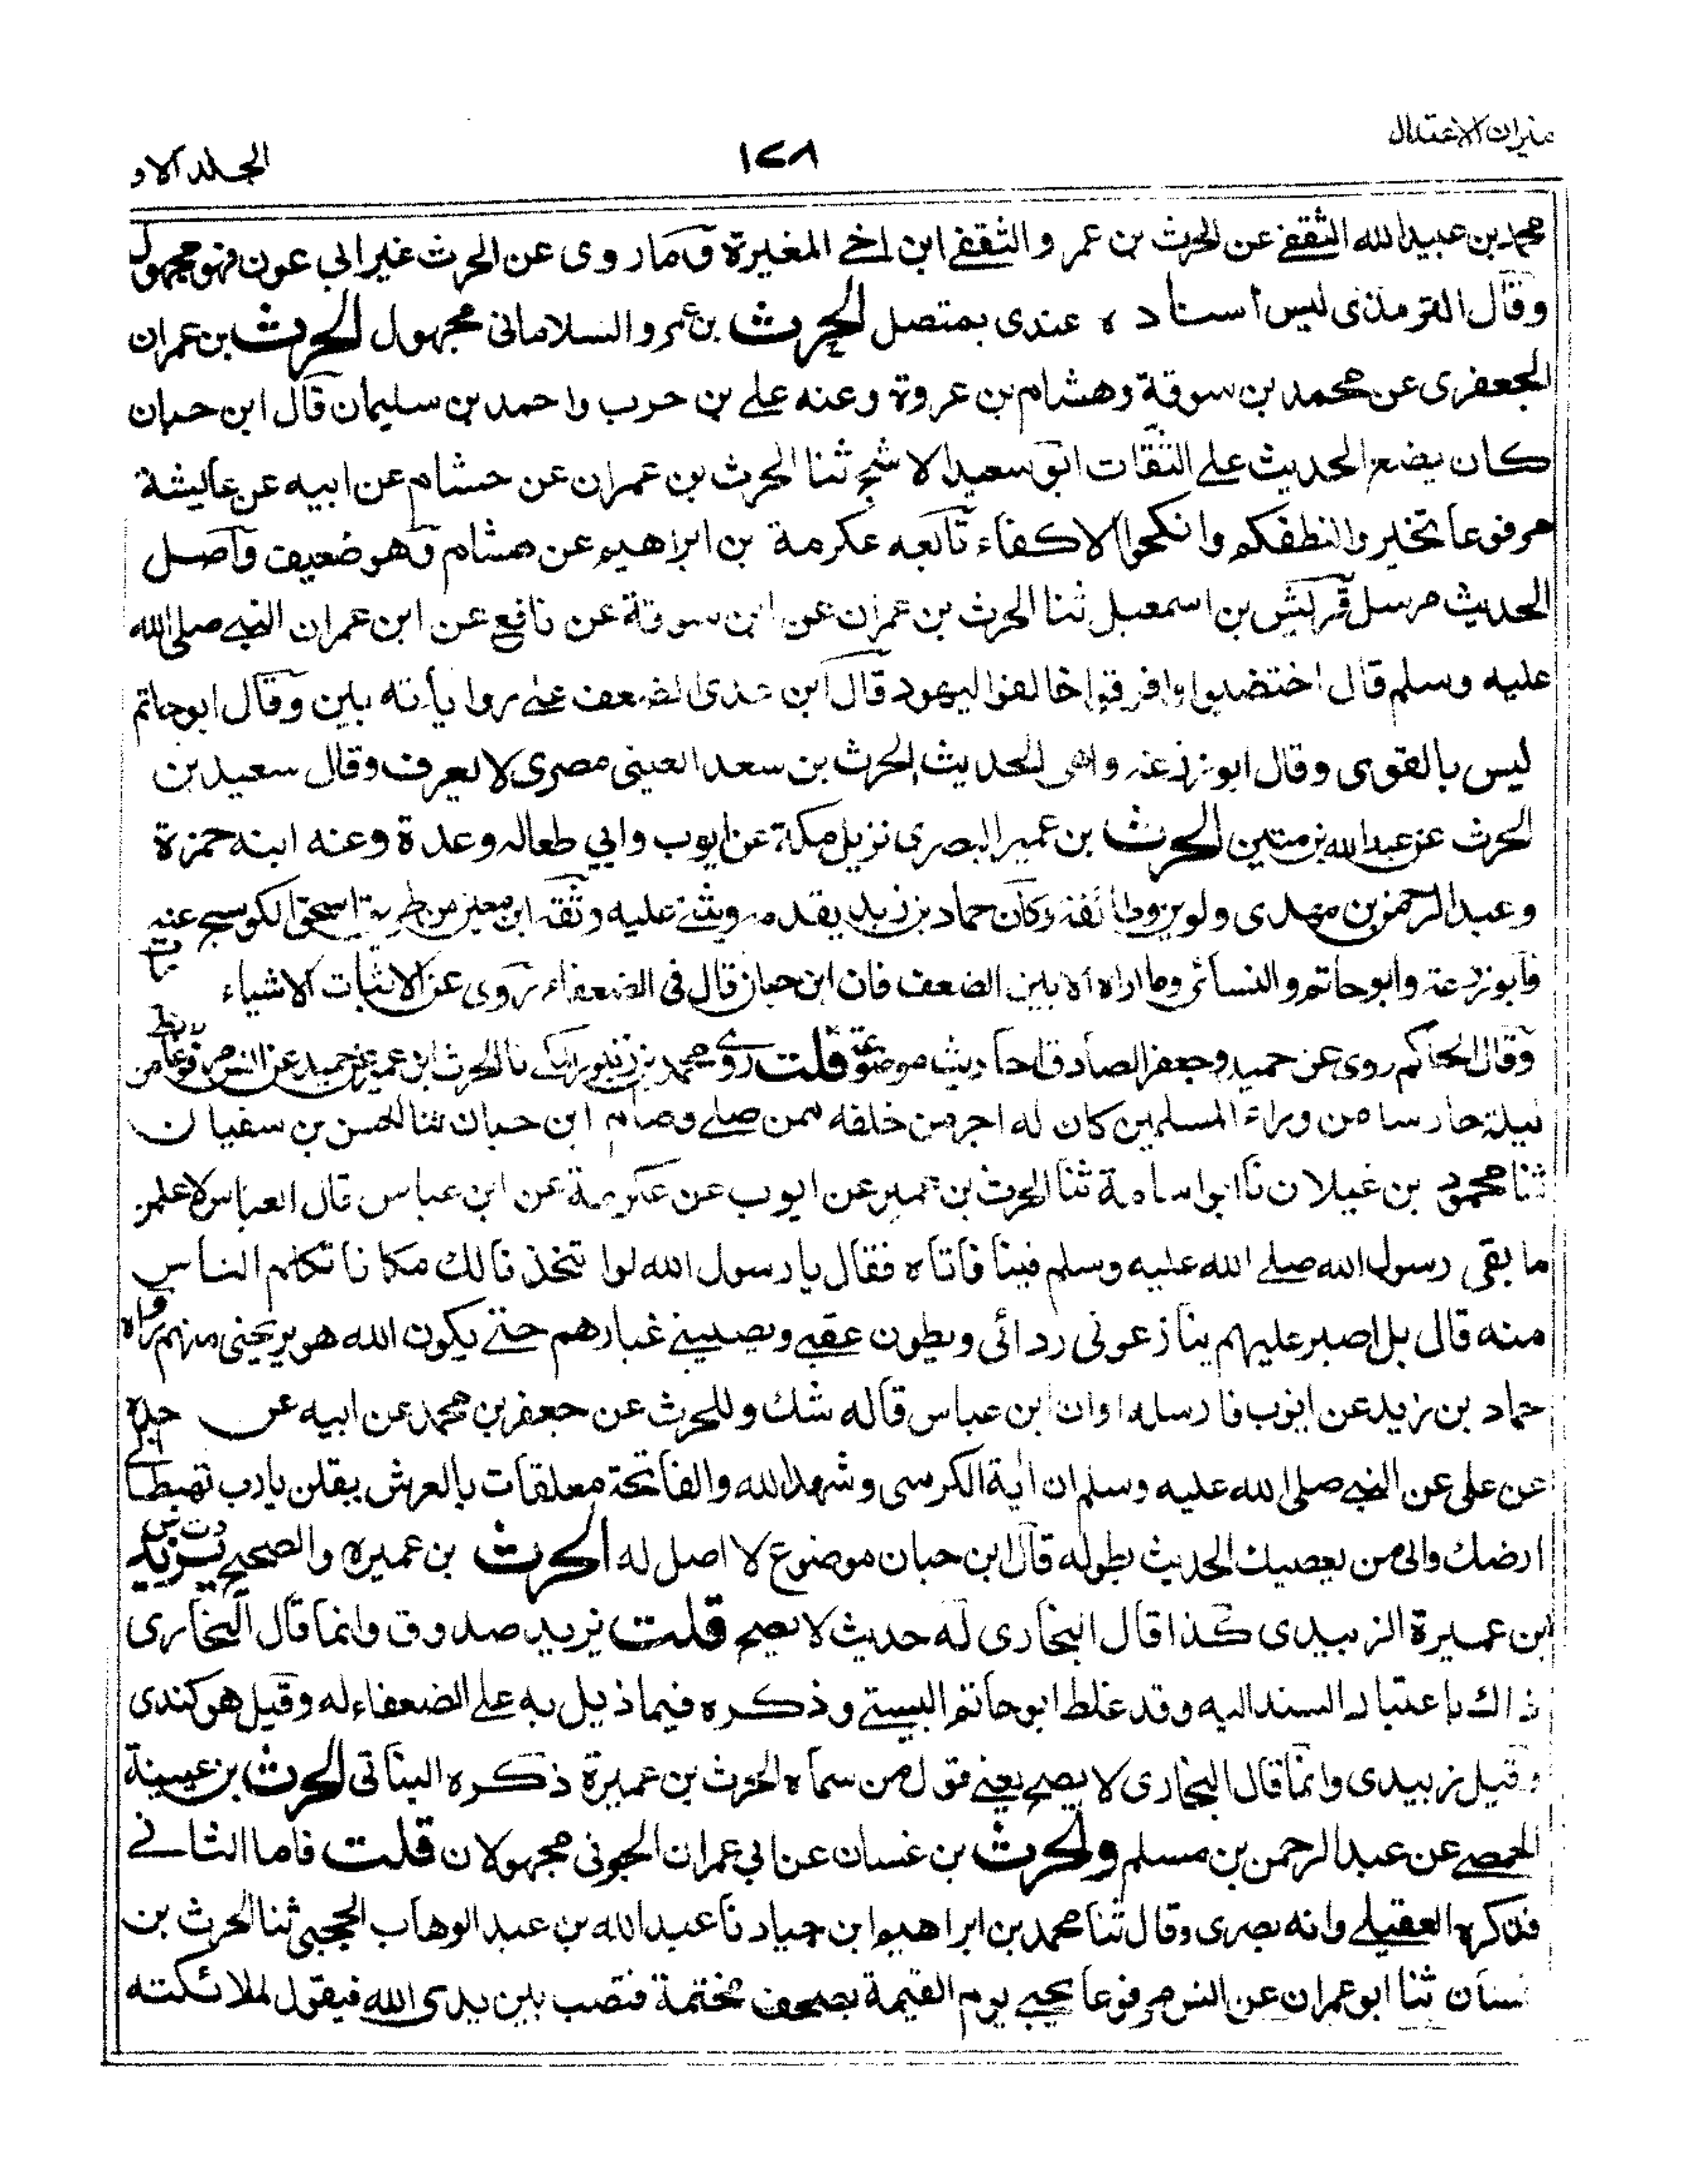 ميزان الاعتدال
١٢٨
المجلد الاو
محمد بن عبيد الله الثقفي عن الحرث بن عمرو الثقفي ابن اخي المغيرة وما روى عن الحرث غير ابي عون فهو مجهول
وقال الترمذى ليس اسناده عندى بمتصل الحرث بن عمرو السلامانى مجهول الحرث بن عمران
الجعفرى عن محمد بن سوقة وهشام بن عروة وعنه علي بن حرب واحمد بن سليمان قال ابن حبان
كان يضع الحديث على الثقات ابو سعيد الاشج ثنا الحرث بن عمران عن هشام عن ابيه عن عائشة
مرفوعا تخيروا لنطفكم وانكحوا الاكفاء تابعه عكرمة بن ابراهيم عن هشام وهو ضعيف واصل
الحديث مرسل قريش بن اسمعيل ثنا الحرث بن عمران عن ابن سوقة عن نافع عن ابن عمر ان النبي صلى الله
عليه وسلم قال اختضبوا وافرقوا خالفوا اليهود قال ابن عدى الضعف على رواياته بين وقال ابو حاتم
ليس بالقوى وقال ابو زرعة واهى الحديث الحرث بن سعد العينى مصرى لا يعرف وقال سعيد بن
الحرث عن عبد الله بن متين الحرث بن عمير البصرى نزيل مكة عن ايوب وابي طعاله وعدة وعنه ابنه حمزة
وعبد الرحمن بن مهدى ولوين وطائفة وكان حماد بن زيد يقدمه ويثني عليه وثقه ابن معين من طريق اسحق الكوسج عنه
وابو زرعة وابو حاتم والنسائى وما اراه الا بين الضعف فان ابن حبان قال فى الضعفاء روى عن الاثبات الاشياء
وقال الحاكم روى عن حميد وجعفر الصادق احاديث موضوعة قلت روى محمد بن زنبور المكي نا الحرث ابن عمير عن حميد عن انس مرفوعا من
ليلة حارسا من وراء المسلمين كان له اجر من خلفه ممن صلى وصام ابن حبان ثنا الحسن بن سفيان
ثنا محمود بن غيلان نا ابو اسامة ثنا الحرث بن عمير عن ايوب عن عكرمة عن ابن عباس قال العباس لاعلمن
ما بقى رسول الله صلى الله عليه وسلم فينا فاتاه فقال يا رسول الله لو اتخذنا لك مكانا تكلم الناس
منه قال بل اصبر عليهم ينازعونى ردائى ويطون عقبي ويصيبني غبارهم حتى يكون الله هو يريحنى منهم رواه
حماد بن زيد عن ايوب فارسله او ان ابن عباس قاله شك وللحرث عن جعفر بن محمد عن ابيه عن جده
عن على عن النبي صلى الله عليه وسلم ان اية الكرسى وشهد الله والفاتحة معلقات بالعرش يقلن يا رب تهبطنا الى
ارضك والى من يعصيك الحديث بطوله قال ابن حبان موضوع لا اصل له الحرث بن عميره والصحيح يزيد
بن عميرة الزبيدى كذا قال البخارى له حديث لا يصح قلت يزيد صدوق وانما قال البخارى
ذاك باعتبار السند اليه وقد غلط ابو حاتم البستي وذكره فيما ذيل به على الضعفاء له وقيل هو كندى
وقيل زبيدى وانما قال البخارى لا يصح يعني قول من سماه الحرث بن عميرة ذكره البناتى الحرث بن عيينة
الحمصي عن عبد الرحمن بن مسلم والحرث بن غسان عن ابي عمران الجونى مجهولان قلت فاما الثاني
فذكره العقيلي وانه بصرى وقال ثنا محمد بن ابراهيم ابن جياد نا عبيد الله بن عبد الوهاب الحجبى ثنا الحرث بن
غسان ثنا ابو عمران عن انس مرفوعا يجيء يوم القيمة بصحف مختمة فتصب بين يدى الله فيقول لملائكته